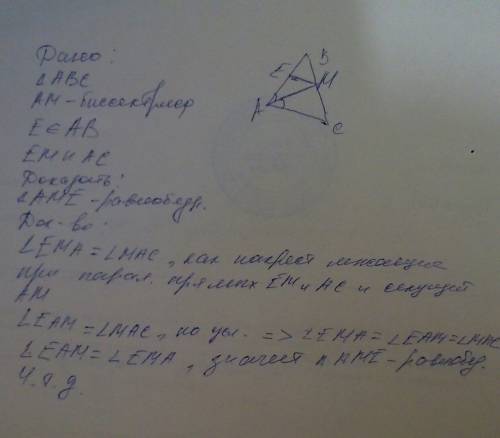 Дано:
△ABC
AM - биссектриса
E ∈ AB
EM ∥ AC
Доказать:
△AME - равнобедр.
Док-во.
∠EMA = ∠MAC, как накрест лежащие
при парал. прямых EM и AC и секущей
AM
∠EAM = ∠MAC, по усл. => ∠EMA = ∠EAM = ∠MAC
∠EAM = ∠EMA, значит △AME - равнобед.
Ч.т.д.
B
E
M
A
C